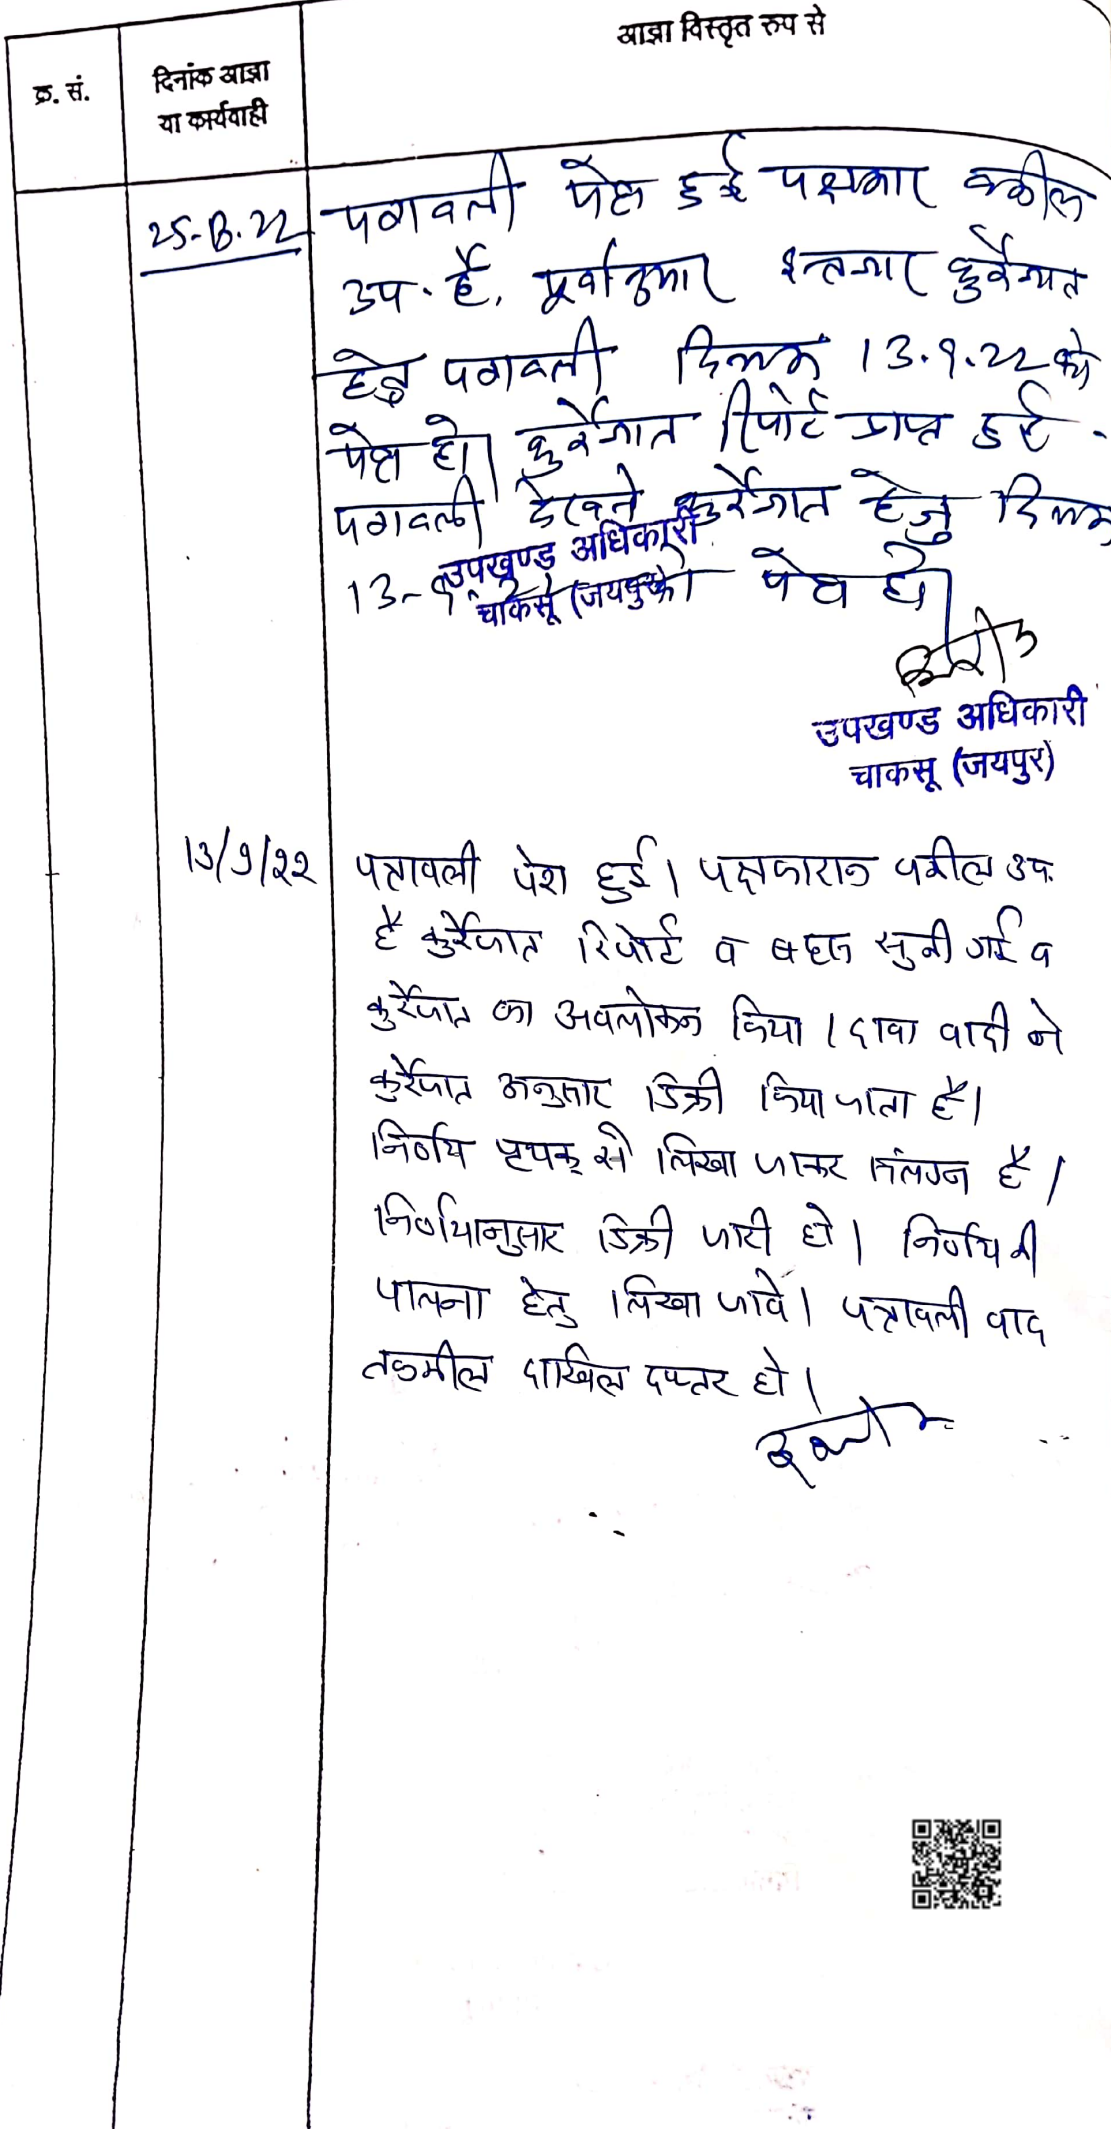 आज्ञा विस्तृत रुप से
क्र. सं.
दिनांक आज्ञा
या कार्यवाही
25-8-22
पत्रावली पेश हुई पक्षकार वकील
उप. है, पूर्वानुसार इन्तजार कुर्रेजात
हेतु पत्रावली दिनांक 13.9.22 को
पेश हो। कुर्रेजात रिपोर्ट प्राप्त हुई.
पत्रावली देखने कुर्रेजात हेतु दिनांक
13-9- को पेश हो।
उपखण्ड अधिकारी
चाकसू (जयपुर)
उपखण्ड अधिकारी
चाकसू (जयपुर)
13/9/22
पत्रावली पेश हुई। पक्षकारान वकील उप.
है कुर्रेजात रिपोर्ट व बहस सुनी गई व
कुर्रेजात का अवलोकन किया। दावा वादी ने
कुर्रेजात अनुसार डिक्री किया जाता है।
निर्णय पृथक् से लिखा जाकर संलग्न है।
निर्णयानुसार डिक्री जारी हो। निर्णय की
पालना हेतु लिखा जावे। पत्रावली वाद
तकमील दाखिल दफ्तर हो।